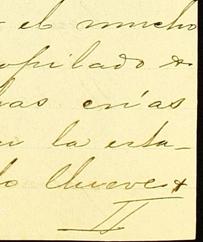 el mucho
opilado &
has crías
la esta-
lo llueve &
II